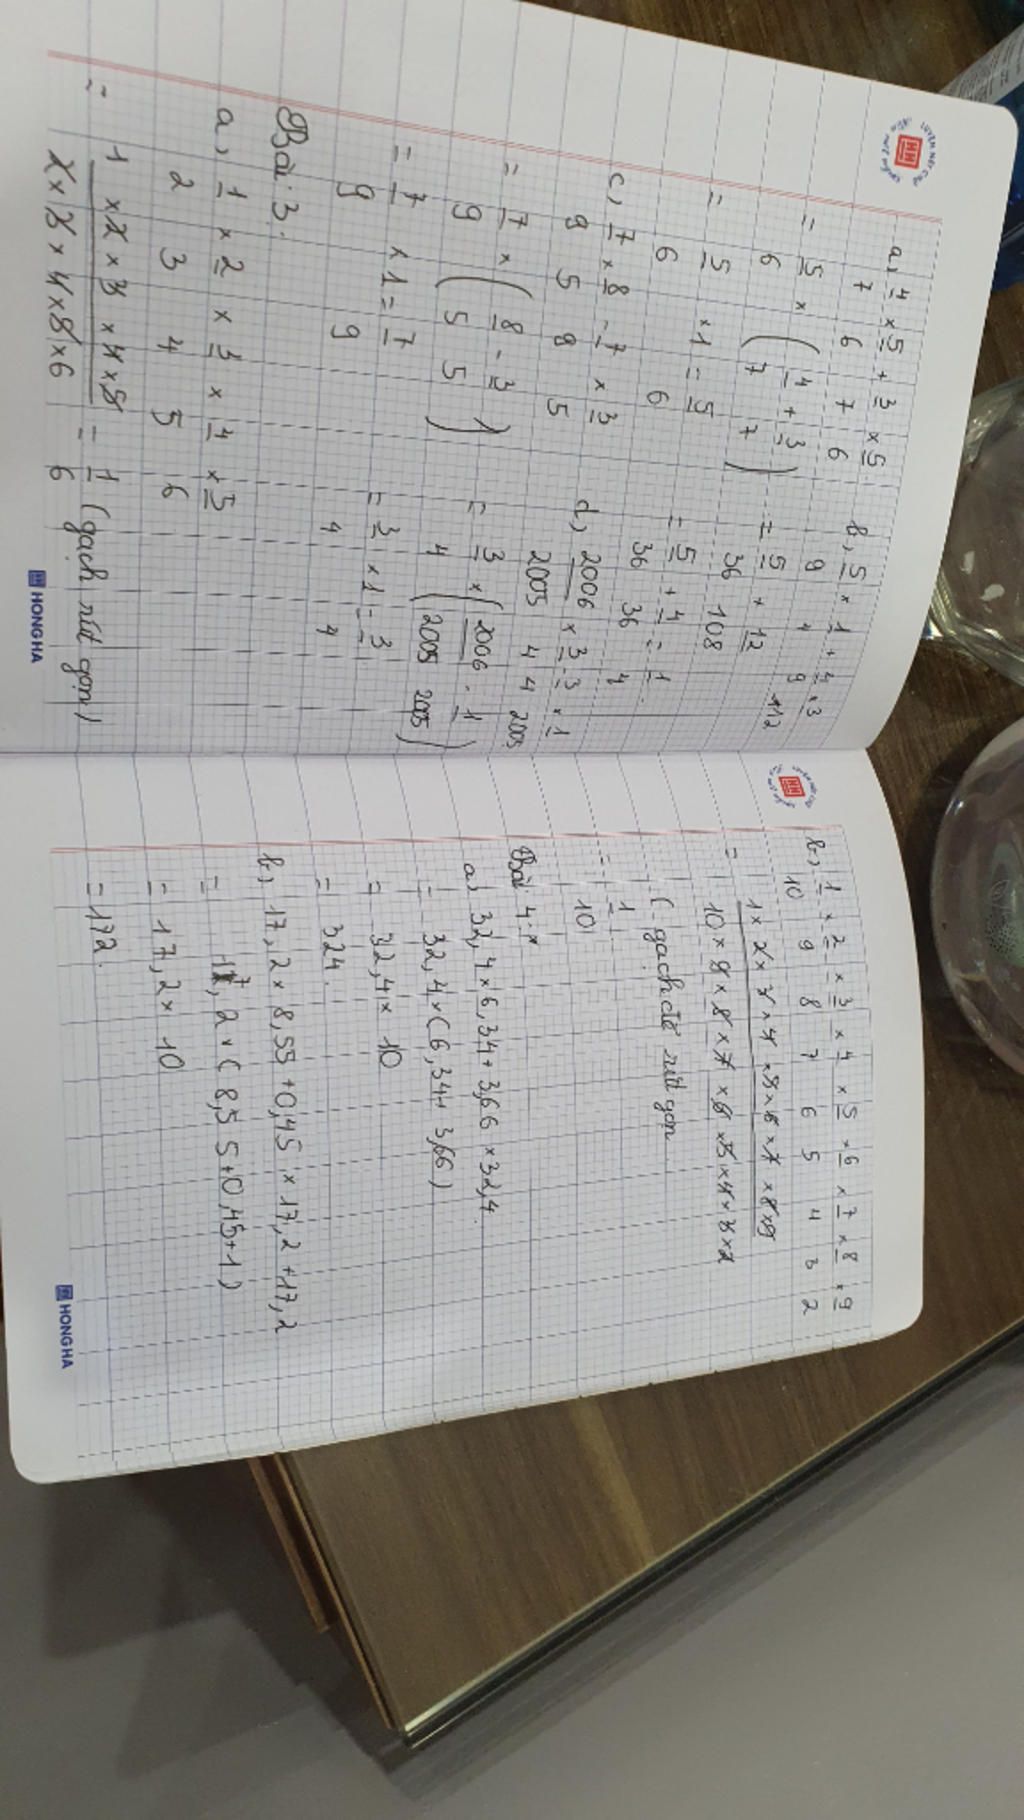 a, 4/7 × 5/6 + 3/7 × 5/6
= 5/6 × (4/7 + 3/7)
= 5/6 × 1 = 5/6
b, 5/9 × 1/4 + 4/9 × 3/12
= 5/36 + 12/108
= 5/36 + 4/36 = 1/4
c, 7/9 × 8/5 - 7/9 × 3/5
= 7/9 × (8/5 - 3/5)
= 7/9 × 1 = 7/9
d, 2006/2005 × 3/4 - 3/4 × 1/2005
= 3/4 × (2006/2005 - 1/2005)
= 3/4 × 1 = 3/4
Bài: 3.
a, 1/2 × 2/3 × 3/4 × 4/5 × 5/6
= 1 × 2 × 3 × 4 × 5 / 2 × 3 × 4 × 5 × 6 = 1/6 (gạch rút gọn)
HONG HA
b, 1/10 × 2/9 × 3/8 × 4/7 × 5/6 × 6/5 × 7/4 × 8/3 × 9/2
= 1 × 2 × 3 × 4 × 5 × 6 × 7 × 8 × 9 / 10 × 9 × 8 × 7 × 6 × 5 × 4 × 3 × 2
( gạch để rút gọn
= 1/10
Bài 4:
a, 32,4 × 6,34 + 3,66 × 32,4
= 32,4 × (6,34 + 3,66)
= 32,4 × 10
= 324.
b, 17,2 × 8,55 + 0,45 × 17,2 + 17,2
= 17,2 × (8,55 + 0,45 + 1)
= 17,2 × 10
= 172.
HONG HA